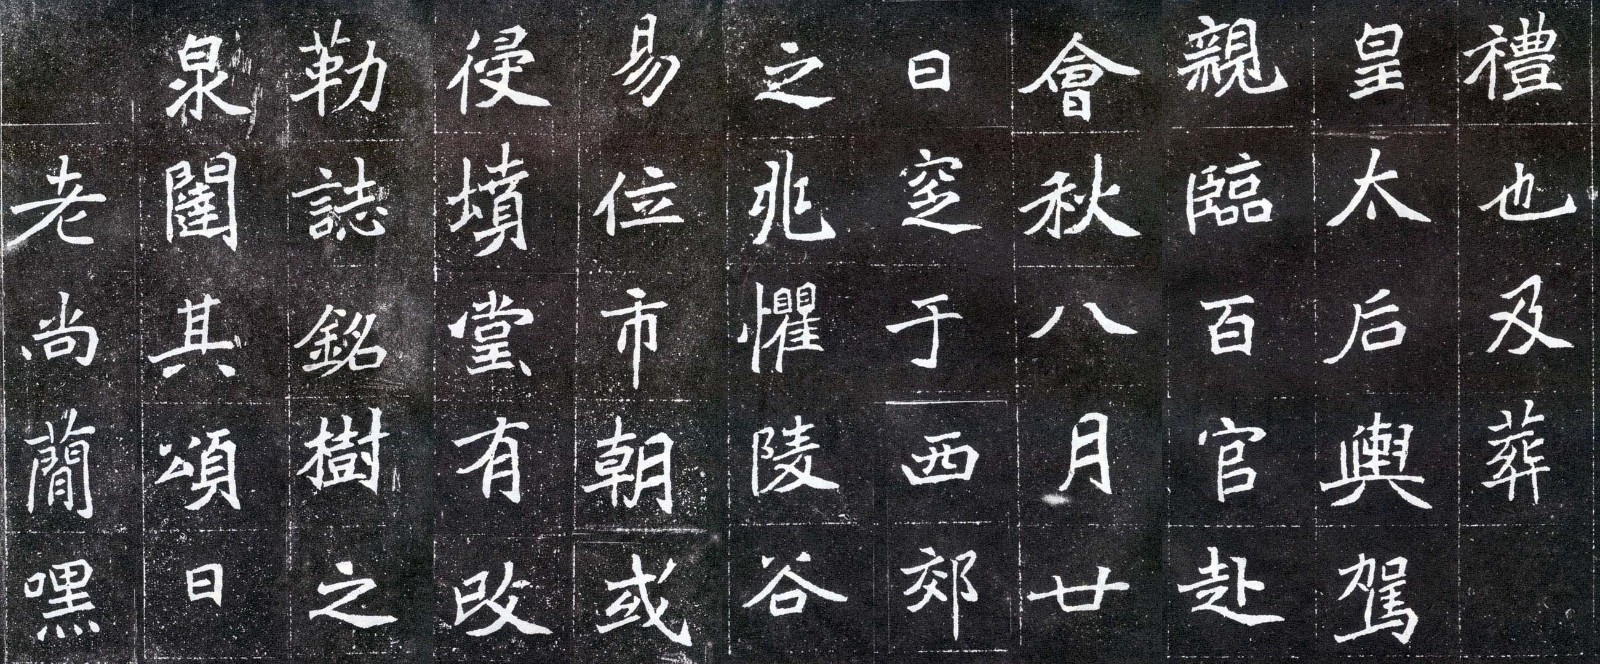 禮也及葬
皇太后輿駕
親臨百官赴
會秋八月廿
日窆于西郊
之兆懼陵谷
易位市朝或
侵墳堂有改
勒誌銘樹之
泉闥其頌曰
老尚蕳嘿